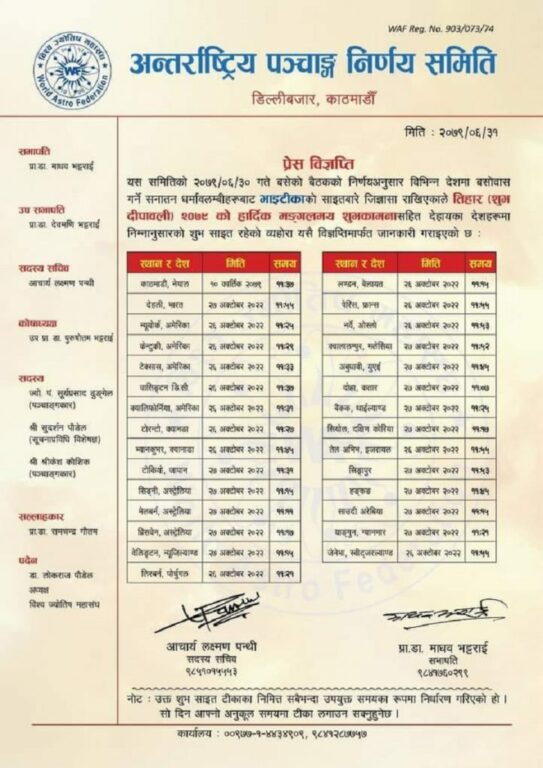 WAF Reg. No. 903/073/74
विश्व ज्योतिष महासंघ
WAF
World Astro Federation
अन्तर्राष्ट्रिय पञ्चाङ्ग निर्णय समिति
डिल्लीबजार, काठमाडौँ
मिति : २०७९/०६/३१
सभापति
प्रा.डा. माधव भट्टराई
उप सभापति
प्रा.डा. देवमणि भट्टराई
सदस्य सचिव
आचार्य लक्ष्मण पन्थी
कोषाध्यक्ष
उप प्रा. डा. पुरुषोत्तम भट्टराई
सदस्य
ज्यो. पं. सुर्यप्रसाद ढुङ्गेल
(पञ्चाङ्गकार)
श्री सुदर्शन पौडेल
(सूचनाप्रविधि विशेषज्ञ)
श्री श्रीकेश कौशिक
(पञ्चाङ्गकार)
सल्लाहकार
प्रा.डा. रामचन्द्र गौतम
पदेन
डा. लोकराज पौडेल
अध्यक्ष
विश्व ज्योतिष महासंघ
प्रेस विज्ञप्ति
यस समितिको २०७९/०६/३० गते बसेको बैठकको निर्णयअनुसार विभिन्न देशमा बसोवास
गर्ने सनातन धर्मावलम्बीहरूबाट भाइटीकाको साइतबारे जिज्ञासा राखिएकाले तिहार (शुभ
दीपावली) २०७९ को हार्दिक मङ्गलमय शुभकामनासहित देहायका देशहरूमा
निम्नानुसारको शुभ साइत रहेको व्यहोरा यसै विज्ञप्तिमार्फत जानकारी गराइएको छ :
स्थान र देश मिति समय
काठमाडौं, नेपाल १० कार्तिक २०७९ ११:३७
देहली, भारत २७ अक्टोबर २०२२ ११:५५
न्यूयोर्क, अमेरिका २६ अक्टोबर २०२२ ११:२५
केन्टुकी, अमेरिका २६ अक्टोबर २०२२ ११:२९
टेक्सास, अमेरिका २६ अक्टोबर २०२२ ११:३३
वासिङ्टन डि.सी. २६ अक्टोबर २०२२ ११:३७
क्यालिफोर्निया, अमेरिका २६ अक्टोबर २०२२ ११:३१
टोरन्टो, क्यानडा २६ अक्टोबर २०२२ ११:२७
भ्यानकुभर, क्यानाडा २६ अक्टोबर २०२२ ११:४५
टोकियो, जापान २७ अक्टोबर २०२२ ११:३१
सिड्नी, अस्ट्रेलिया २७ अक्टोबर २०२२ ११:१५
मेलबर्न, अस्ट्रेलिया २७ अक्टोबर २०२२ ११:११
ब्रिसवेन, अस्ट्रेलिया २७ अक्टोबर २०२२ ११:१७
वेलिङ्टन, न्यूजिल्याण्ड २७ अक्टोबर २०२२ ११:१५
लिस्बर्न, पोर्चुगल २६ अक्टोबर २०२२ ११:२१
स्थान र देश मिति समय
लण्डन, बेलायत २६ अक्टोबर २०२२ ११:१५
पेरिस, फ्रान्स २६ अक्टोबर २०२२ ११:५५
नर्वे, ओस्लो २६ अक्टोबर २०२२ ११:५३
क्वालालम्पुर, मलेसिया २७ अक्टोबर २०२२ ११:५२
अबुधाबी, युएई २७ अक्टोबर २०२२ ११:४५
दोहा, कतार २७ अक्टोबर २०२२ ११:०७
बैंकक, थाईल्याण्ड २७ अक्टोबर २०२२ ११:२५
सियोल, दक्षिण कोरिया २७ अक्टोबर २०२२ ११:१७
तेल अभिभ, इजरायल २६ अक्टोबर २०२२ ११:५५
सिङ्गापुर २७ अक्टोबर २०२२ ११:५३
हङकङ २७ अक्टोबर २०२२ ११:४५
साउदी अरेबिया २७ अक्टोबर २०२२ ११:१५
याङ्गुन, म्यानमार २७ अक्टोबर २०२२ ११:२१
जेनेभा, स्वीट्जरल्याण्ड २६ अक्टोबर २०२२ ११:५५
आचार्य लक्ष्मण पन्थी
सदस्य सचिव
९८५१०१५५५३
प्रा.डा. माधव भट्टराई
सभापति
९८४१७६०२९९
नोट : उक्त शुभ साइत टीकाका निमित्त सबैभन्दा उपयुक्त समयका रूपमा निर्धारण गरिएको हो ।
सो दिन आफ्नो अनुकूल समयमा टीका लगाउन सक्नुहुनेछ ।
कार्यालय : ००९७७-१-४४३४९०९, ९८४१२८७७५७